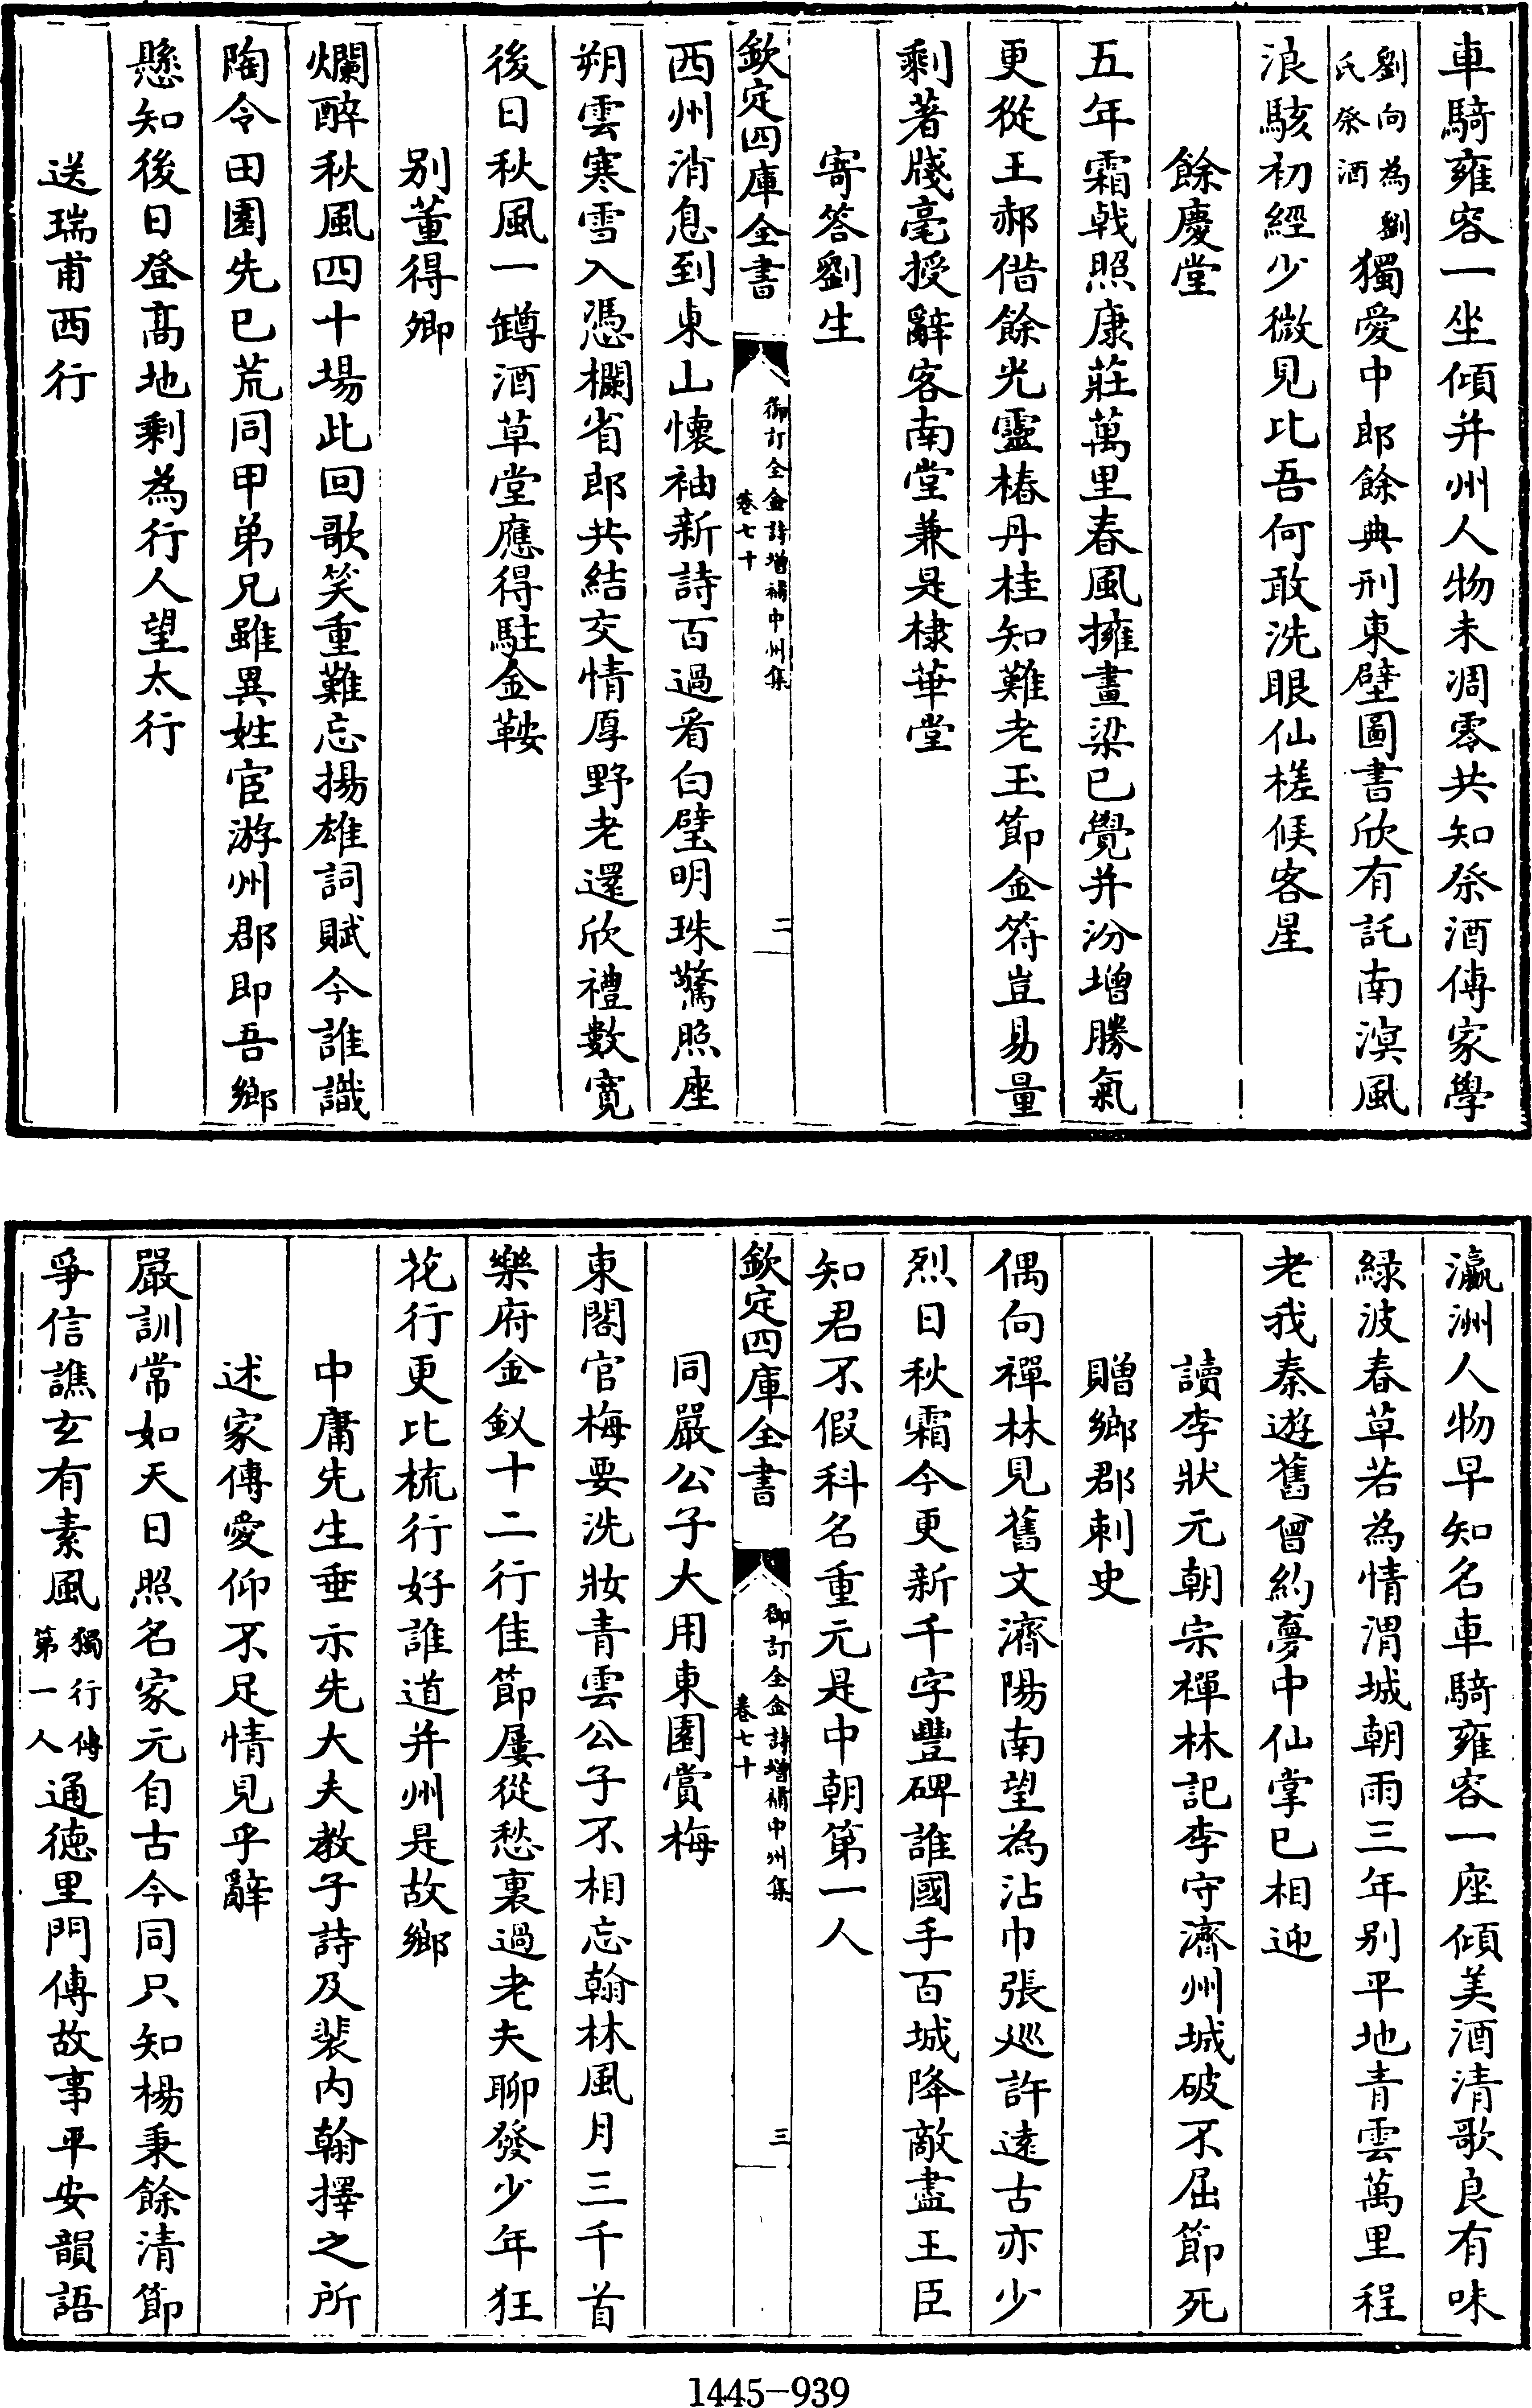 車騎雍容一坐傾并州人物未凋零共知祭酒傳家學
劉向為劉
氏祭酒
獨愛中郎餘典刑東壁圖書欣有託南溟風
浪駭初經少微見比吾何敢洗眼仙槎候客星
餘慶堂
五年霜戟照康莊萬里春風擁畫梁已覺并汾增勝氣
更從王郝借餘光靈椿丹桂知難老玉節金符豈易量
剩著牋毫授辭客南堂兼是棣華堂
寄答劉生
欽定四庫全書
御訂全金詩增補中州集
卷七十
二
西州消息到東山懷袖新詩百過看白璧明珠驚照座
朔雲寒雪入憑欄省郎共結交情厚野老還欣禮數寛
後日秋風一罇酒草堂應得駐金鞍
别董得卿
爛醉秋風四十場此回歌笑重難忘揚雄詞賦今誰識
陶令田園先已荒同甲弟兄雖異姓宦游州郡即吾鄉
懸知後日登髙地剩為行人望太行
送瑞甫西行
瀛洲人物早知名車騎雍容一座傾美酒清歌良有味
緑波春草若為情渭城朝雨三年别平地青雲萬里程
老我秦遊舊曾約夢中仙掌已相迎
讀李狀元朝宗禪林記李守濟州城破不屈節死
贈鄉郡刺史
偶向禪林見舊文濟陽南望為沾巾張巡許逺古亦少
烈日秋霜今更新千字豐碑誰國手百城降敵盡王臣
知君不假科名重元是中朝第一人
欽定四庫全書
御訂全金詩增補中州集
卷七十
三
同嚴公子大用東園賞梅
東閣官梅要洗妝青雲公子不相忘翰林風月三千首
樂府金釵十二行佳節屢從愁裏過老夫聊發少年狂
花行更比梳行好誰道并州是故鄉
中庸先生垂示先大夫教子詩及裴内翰擇之所
述家傳愛仰不足情見乎辭
嚴訓常如天日照名家元自古今同只知楊秉餘清節
爭信譙玄有素風
獨行傳
第一人
通徳里門傳故事平安韻語
1445-939